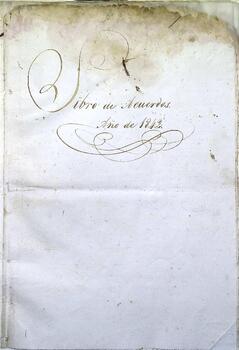 Libro de Acuerdos.
Año de 1842.